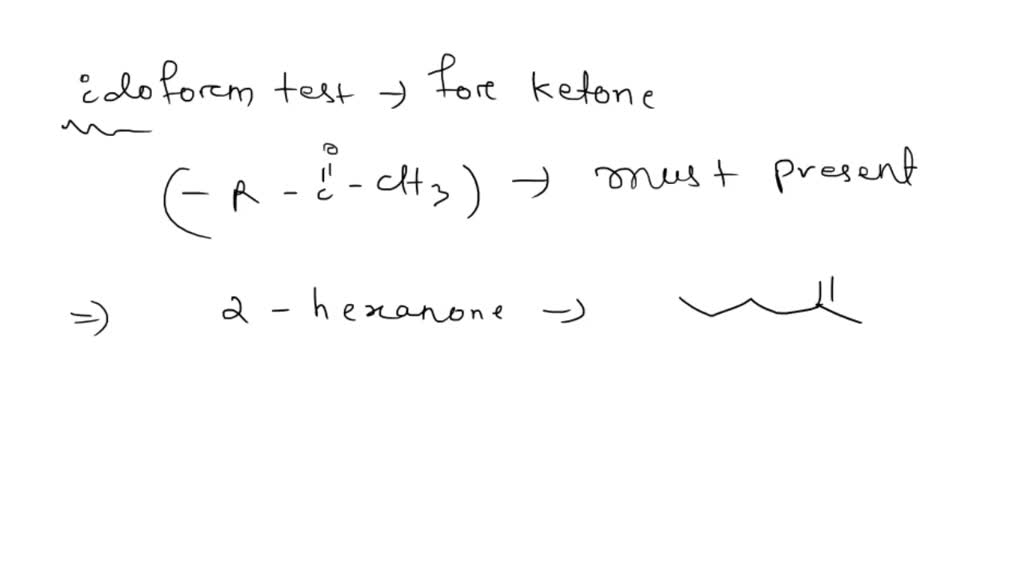 idoform test → fore ketone
(- R - C - CH3) → must present
O
⇒ 2 - hexanone →